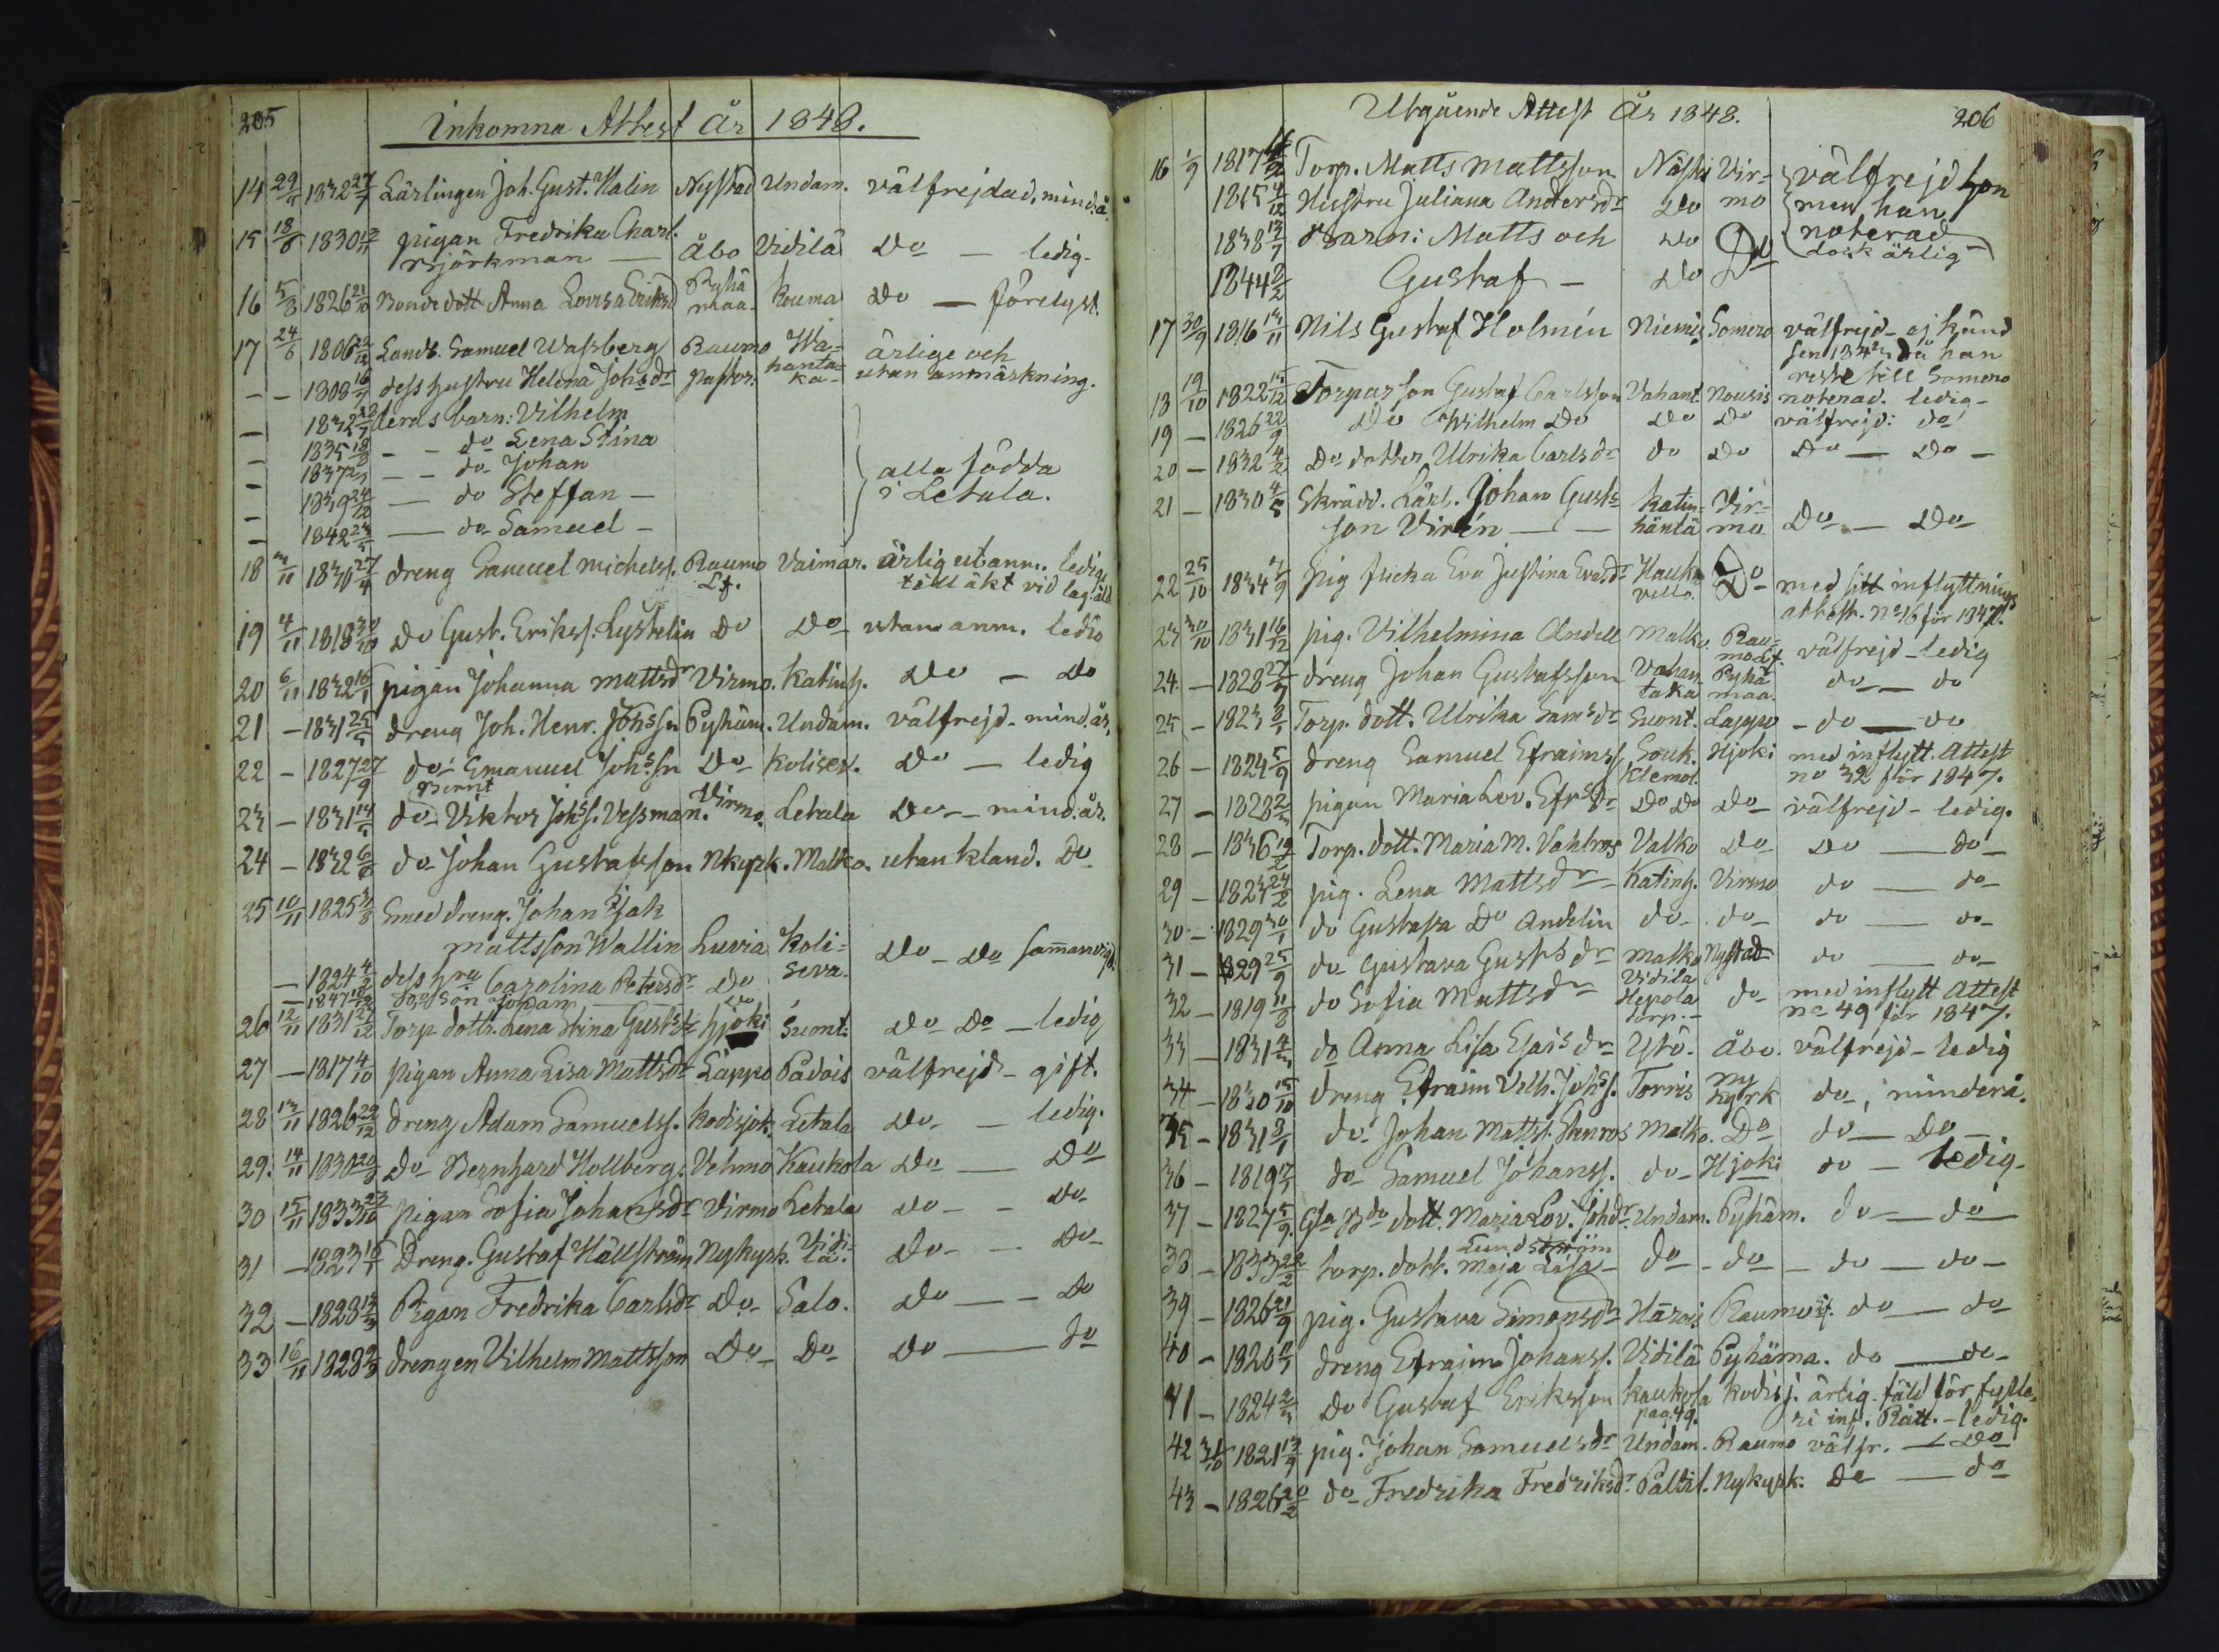 205
Inkomna Attest År 1848.
14 29/5 1832 27/7 Lärlingen Joh. Gust. Malin Nystad Undam. välfrejdad, mind.å.
15 18/6 1830 pigan Fredrika Charl.
Björkman — Åbo Vidilä Do — ledig.
16 5/8 1826 21/10 Bonde dott. Anna Lovisa Eriksd Pyhä
maa. Kouma Do — förelyst.
17 24/6 1806 22/12 Landb. Samuel Wassberg Raumo Wa=
hanta=
ka- ärlige och
— — 1808 16/7 dess hustru Helena Johsdr pastor. utan anmärkning.
— 1832 deras barn: Vilhelm
— 1835 18/8 — - do Lena Stina
— 1837 — - do Johan alla födda
— 1839 24/12 — do Steffan — i Letala.
— 1842 23/5 — do Samuel —
18 3/11 1830 27/4 dreng Samuel Michelss. Raumo
Lf. Vaimar. ärlig ut. anm. ledig,
till äkt vid lag. åld
19 4/11 1818 30/10 Do Gust. Erikss. Lystelin Do Do utan anm. ledig
20 6/11 1832 16/1 pigan Johanna Mattsdr Virmo. Katinh. Do — Do
21 — 1831 25/5 dreng Joh. Henr. Johssn Pyhäm. Undam. välfrejd - mind.år.
22 — 1827 27/9 do Emanuel Johssn Do Kolisev. Do — ledig
Bernt
23 — 1831 14/5 do Viktor Johss. Vessman. Virmo. Letala Do — mind.år.
24 — 1832 6/6 do Johan Gustafsson Nkyrk. Malko. utan kland. Do
25 10/11 1825 3/8 Smed dreng. Johan Isak
Mattsson Wallin Luvia Koli=
seva. Do — Do sam̄anvigd.
— 1824 4/2 dess hru Carolina Petersdr Do
— 1847 18/12 Dess son Johan — Do
26 12/11 1831 24/12 Torp. dottr. Lena Stina Gustsdr Hjoki Suont. Do Do — ledig
27 — 1817 4/10 pigan Anna Lisa Mattsdr Lappo Padois välfrejd - gift.
28 13/11 1826 29/12 dreng Adam Samuelss. Kodisjok. Letala Do — ledig.
29. 14/11 1830 20/8 do Bernhard Hollberg. Vehmo Kaukola Do — Do
30 15/11 1833 23/10 pigan Sofia Johansdr Virmo Letala Do — Do
31 — 1823 16/1 Dreng. Gustaf Hällström Nykyrk. Vidi=
lä. Do — Do
32 — 1828 13/3 Pigan Fredrika Carlsdr Do Salo. Do — Do
33 16/11 1828 2/3 drengen Vilhelm Mattsson Do Do Do — do
Utgående Attest År 1848. 206
16 1/9 1817 Torp. Matts Mattsson Näski Vir=
mo välfrejd hon
1815 4/12 Hustru Juliana Andersdr Do men han
1838 13/7 Barn: Matts och Do Do noterad
dock ärlig
1844 2/2 Gustaf — Do
17 30/9 1816 13/11 Nils Gustaf Holmén Niemis Somero välfrejd - ej känd
sen 1842, då han
reste till Somero
18 19/10 1822 15/12 Torpar son Gustaf Carlsson Vahant. Nousis noterad. ledig -
19 — 1826 22/9 Do Wilhelm Do Do Do välfrejd: do
20 — 1832 4/2 Do dotter Ulrika Carlsdr do Do Do — Do —
21 — 1830 4/5 Skrädd. Lärl. Johan Gusts=
son Virén — — Katin=
häntä Vir=
mo Do — Do
22 25/10 1834 pig flicka Eva Justina Evasdr Hauka
vello. Do med sitt inflyttnings
attest. No 16 för 1847.
23 30/10 1831 16/12 pig. Vilhelmina Andell Malko. Rau=
mo Lf. välfrejd - ledig
24. — 1828 dreng Johan Gustafsson Vahan
taka Pyhä
maa. do — do
25 — 1823 8/1 Torp. dott. Ulrika Samsdr Suont. Lappo - do — do
26 — 1824 5/9 dreng Samuel Efraimss. Souk.
Klemol. Hjoki med inflytt. Attest
no 32 för 1847.
27 — 1828 pigan Maria Lov. Efrsdr Do Do Do välfrejd - ledig.
28 — 1836 19/2 Torp. dott. Maria M. Vahlros Valko Do Do — do
29 — 1823 24/2 pig. Lena Mattsdr Katinh. Virmo do — do
30 — 1829 30/1 do Gustava Do Andelin do do do — do
31 — 1829 25/9 do Gustava Gustsdr Malko Nystad do — do
32 — 1819 11/8 do Sofia Mattsdr Vidila
Hepola
torp. do med inflytt Attest
no 49 för 1847.
33 — 1831 4/3 do Anna Lisa Esaisdr Ytö. Åbo. välfrejd - ledig
34 — 1830 15/10 dreng Efraim Vilh. Johss. Torris Ny
kyrk do, minderå.
35 — 1831 8/1 do Johan Mattss. Stenros Malko. Do do — Do
36 — 1819 do Samuel Johanss. do Hjoki do — ledig.
37 — 1827 5/9 Gla Bde dott. Maria Lov. Johdr. Undam. Pyhäm. do — do
Lundström
38 — 1833 22/2 torp. dott. Maja Lisa — do do do — do
39 — 1826 21/9 pig. Gustava Simonsdr Härois Raumo lf. do — do
40 — 1820 dreng Efraim Johanss. Vidilä Pyhäma. do — do
41 — 1824 do Gustaf Eriksson Kaukola
pag. 49. Kodisj. ärlig. fäld för fylle=
ri inf. Rätt. - ledig.
42 31/10 1821 13/9 pig. Johan Samuelsdr Undam. Raumo välfr. — Do
43 — 1826 20/2 do Fredrika Fredriksdr. Paltil. Nykyrk. Do — do